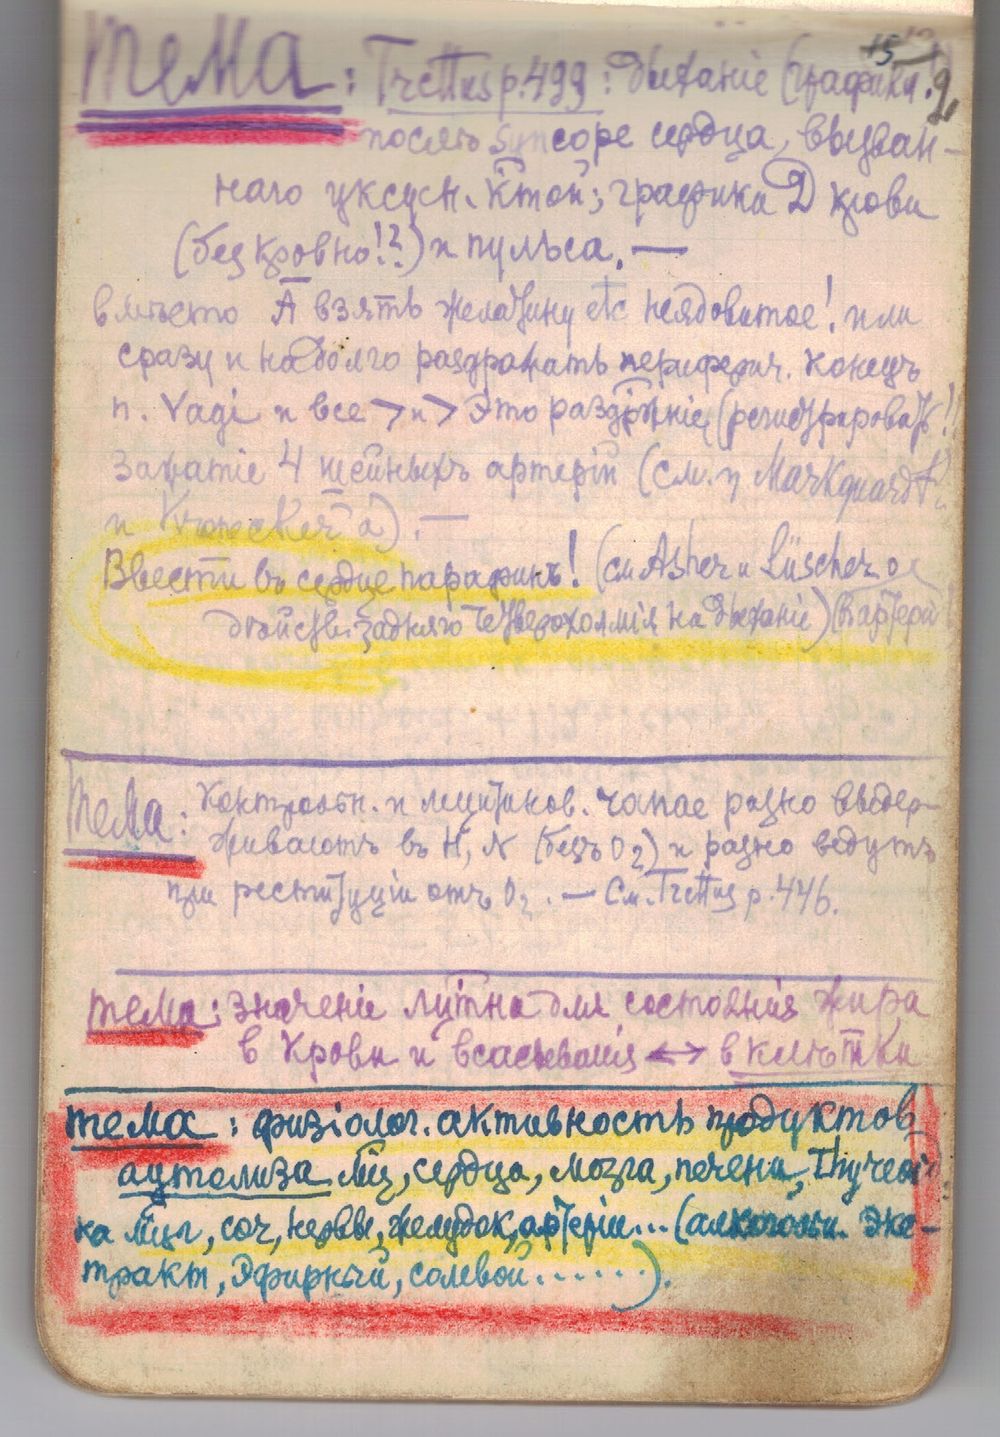 15
9.
Тема: p. 499: дыханіе (графика!)
послѣ сердца, вызван-
наго уксусн. к̅той; графика D крови
(без кровно!?) и пульса. —
вмѣсто А̅ взять желатину etc неядовитое! или
сразу и надолго раздражать периферич. конецъ
n. Vagi и все > и > это раздр̅жніе (регистрировать!!
Зажатіе 4 шейныхъ артерій (см. у
и Kronecker'а). —
Ввести въ сердце парафинъ! (см Asher и Lüscher о
дѣйств. задняго четверохолмія на дыханіе)
Тема: Контрольн. и разно выдер-
живаютъ въ H, N (безъ O2) и разно ведутъ
при реституціи отъ O2. — См. p. 446.
тема: значеніе для состоянія жира
в крови и всасыванія ↔ в клѣтки
тема: физіолог. активность продуктов
аутолиза м̅ц, сердца, мозга, печени,
ка соч, нервы, желудок, артеріи... (алкогольн. экс-
тракт, Эфирный, солевой......).